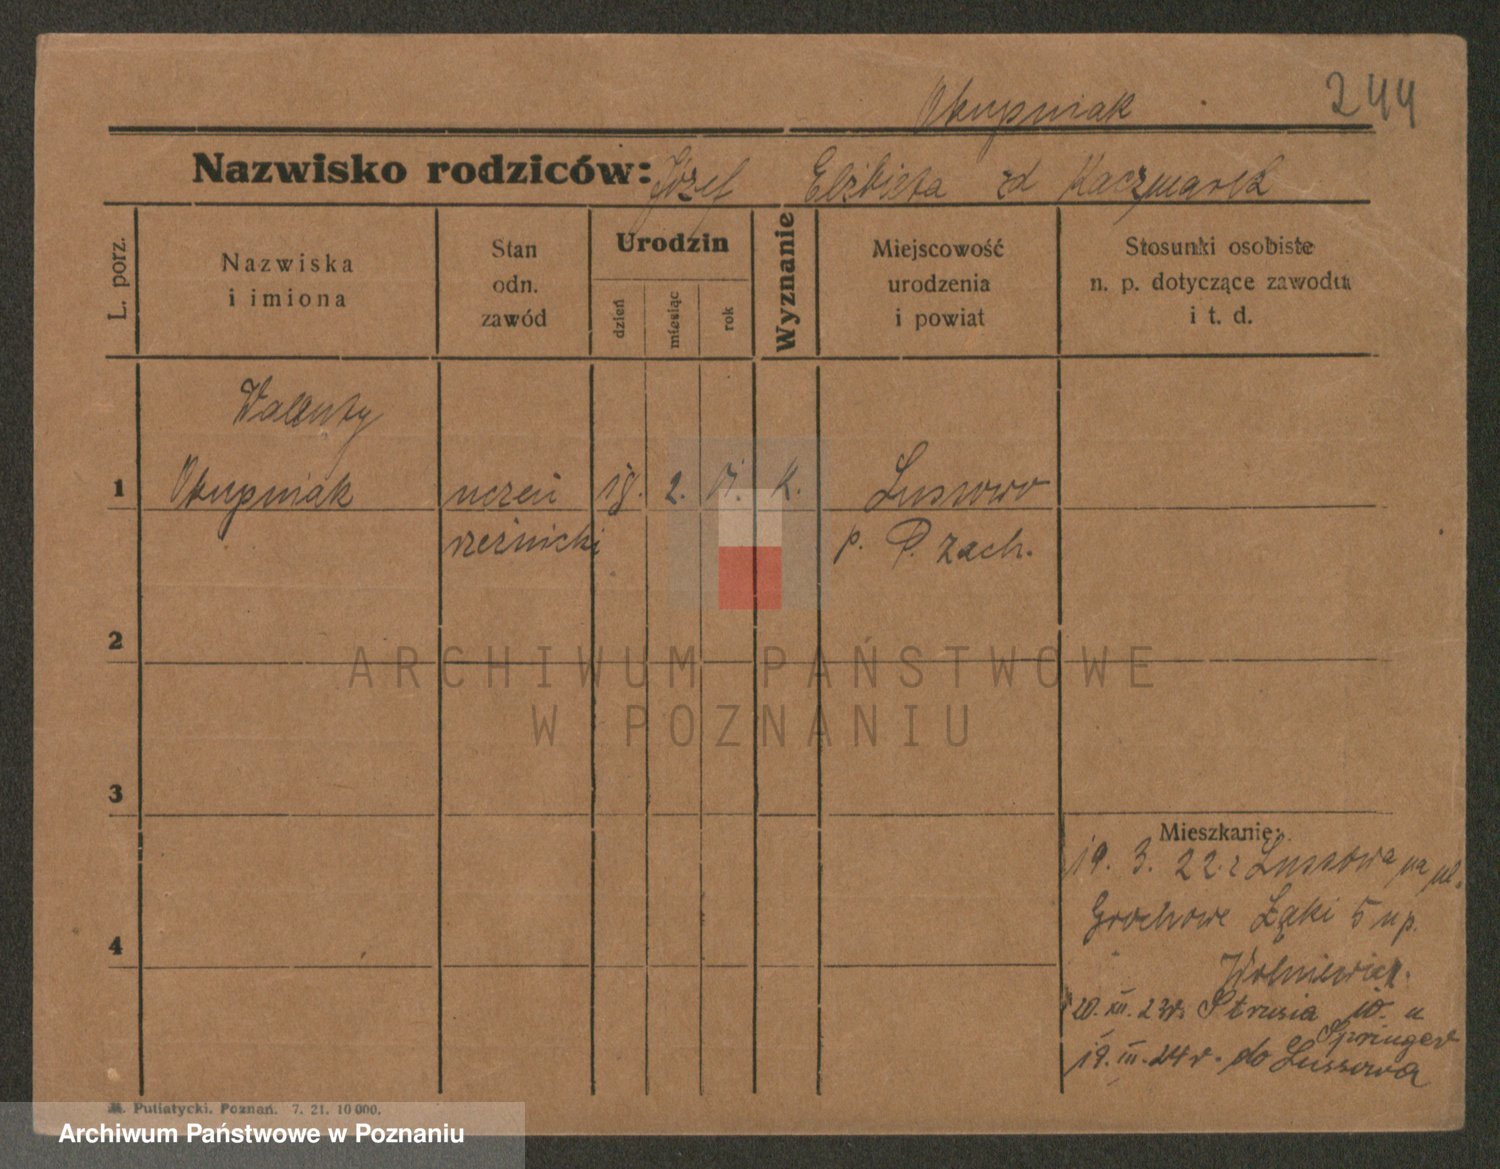 Skupniak 244
Nazwisko rodziców: Józef Elżbieta zd Kaczmarek
L. porz.
Nazwiska i imiona
Stan odn. zawód
Urodzin
dzień
miesiąc
rok
Wyznanie
Miejscowość urodzenia i powiat
Stosunki osobiste n. p. dotyczące zawodu i t. d.
Walenty
1 Skupniak uczeń 18. 2. K. Lussowo
rzeźnicki p. P. zach.
2
ARCHIWUM PAŃSTWOWE
W POZNANIU
3
Mieszkanie:
19. 3. 22. z Lussowa na ul.
Grochowe Łąki 5 u p.
4
20. XII. 23r. Strusia 10. u
Springer
19. III. 24 r. do Lussowa
M. Putiatycki. Poznań. 7. 21. 10 000.
Archiwum Państwowe w Poznaniu